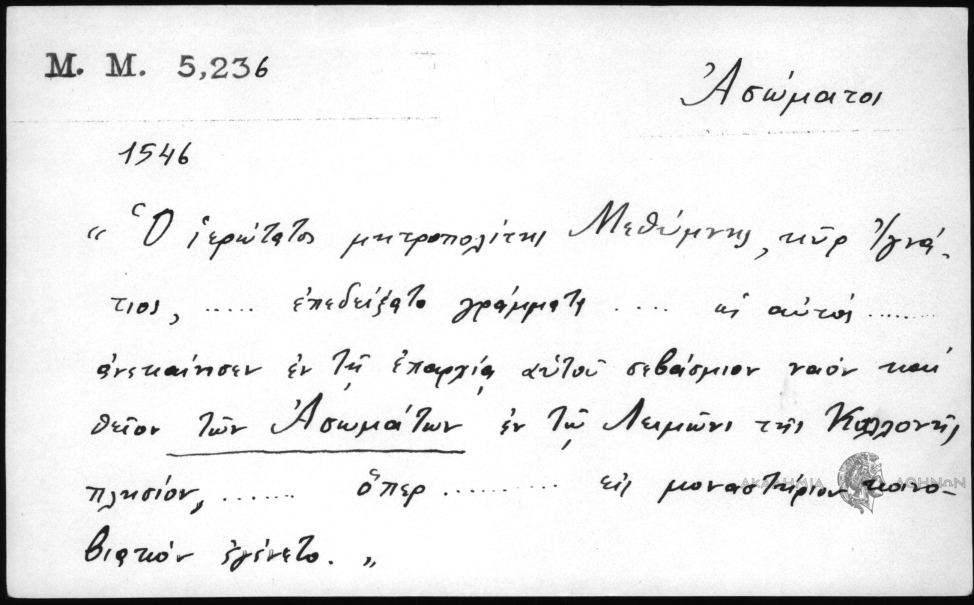 M. M. 5,236
Ἀσώματοι
1546
“ Ὁ ἱερώτατος μητροπολίτης Μεθύμνης, κῦρ Ἰγνά-
τιος, ..... ἐπεδείξατο γράμματα .... αὐτὸς .......
ἀνεκαίνησεν ἐν τῇ ἐπαρχίᾳ αὐτοῦ σεβάσμιον ναὸν καὶ
θεῖον τῶν Ἀσωμάτων ἐν τῷ Λειμῶνι τῆς Καλλονῆς
πλησίον, ....... ὅπερ ......... εἰς μοναστήριον κοινο-
βιακὸν ἐγένετο. „
ΑΚΑΔΗΜΙΑ ΑΘΗΝΩΝ